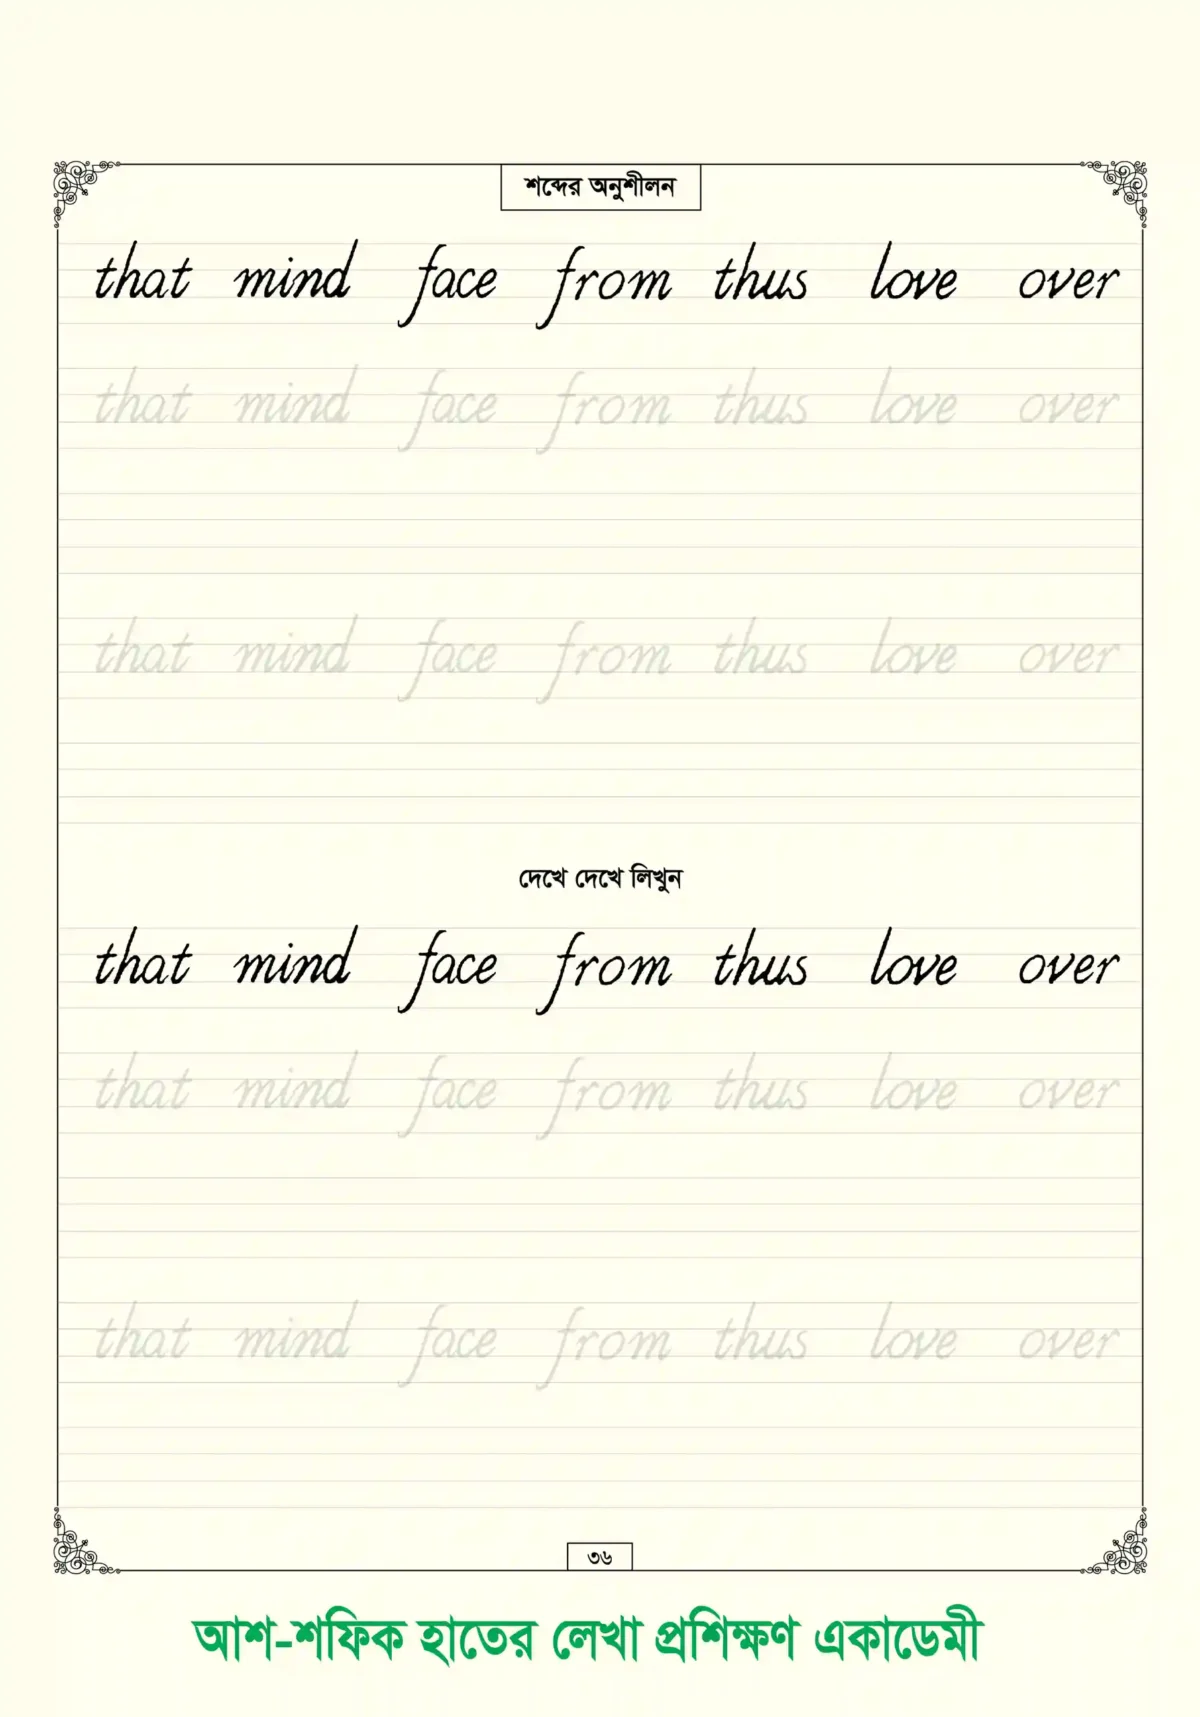 শব্দের অনুশীলন
that mind face from thus love over
that mind face from thus love over
that mind face from thus love over
দেখে দেখে লিখুন
that mind face from thus love over
that mind face from thus love over
that mind face from thus love over
৩৬
আশ-শফিক হাতের লেখা প্রশিক্ষণ একাডেমী